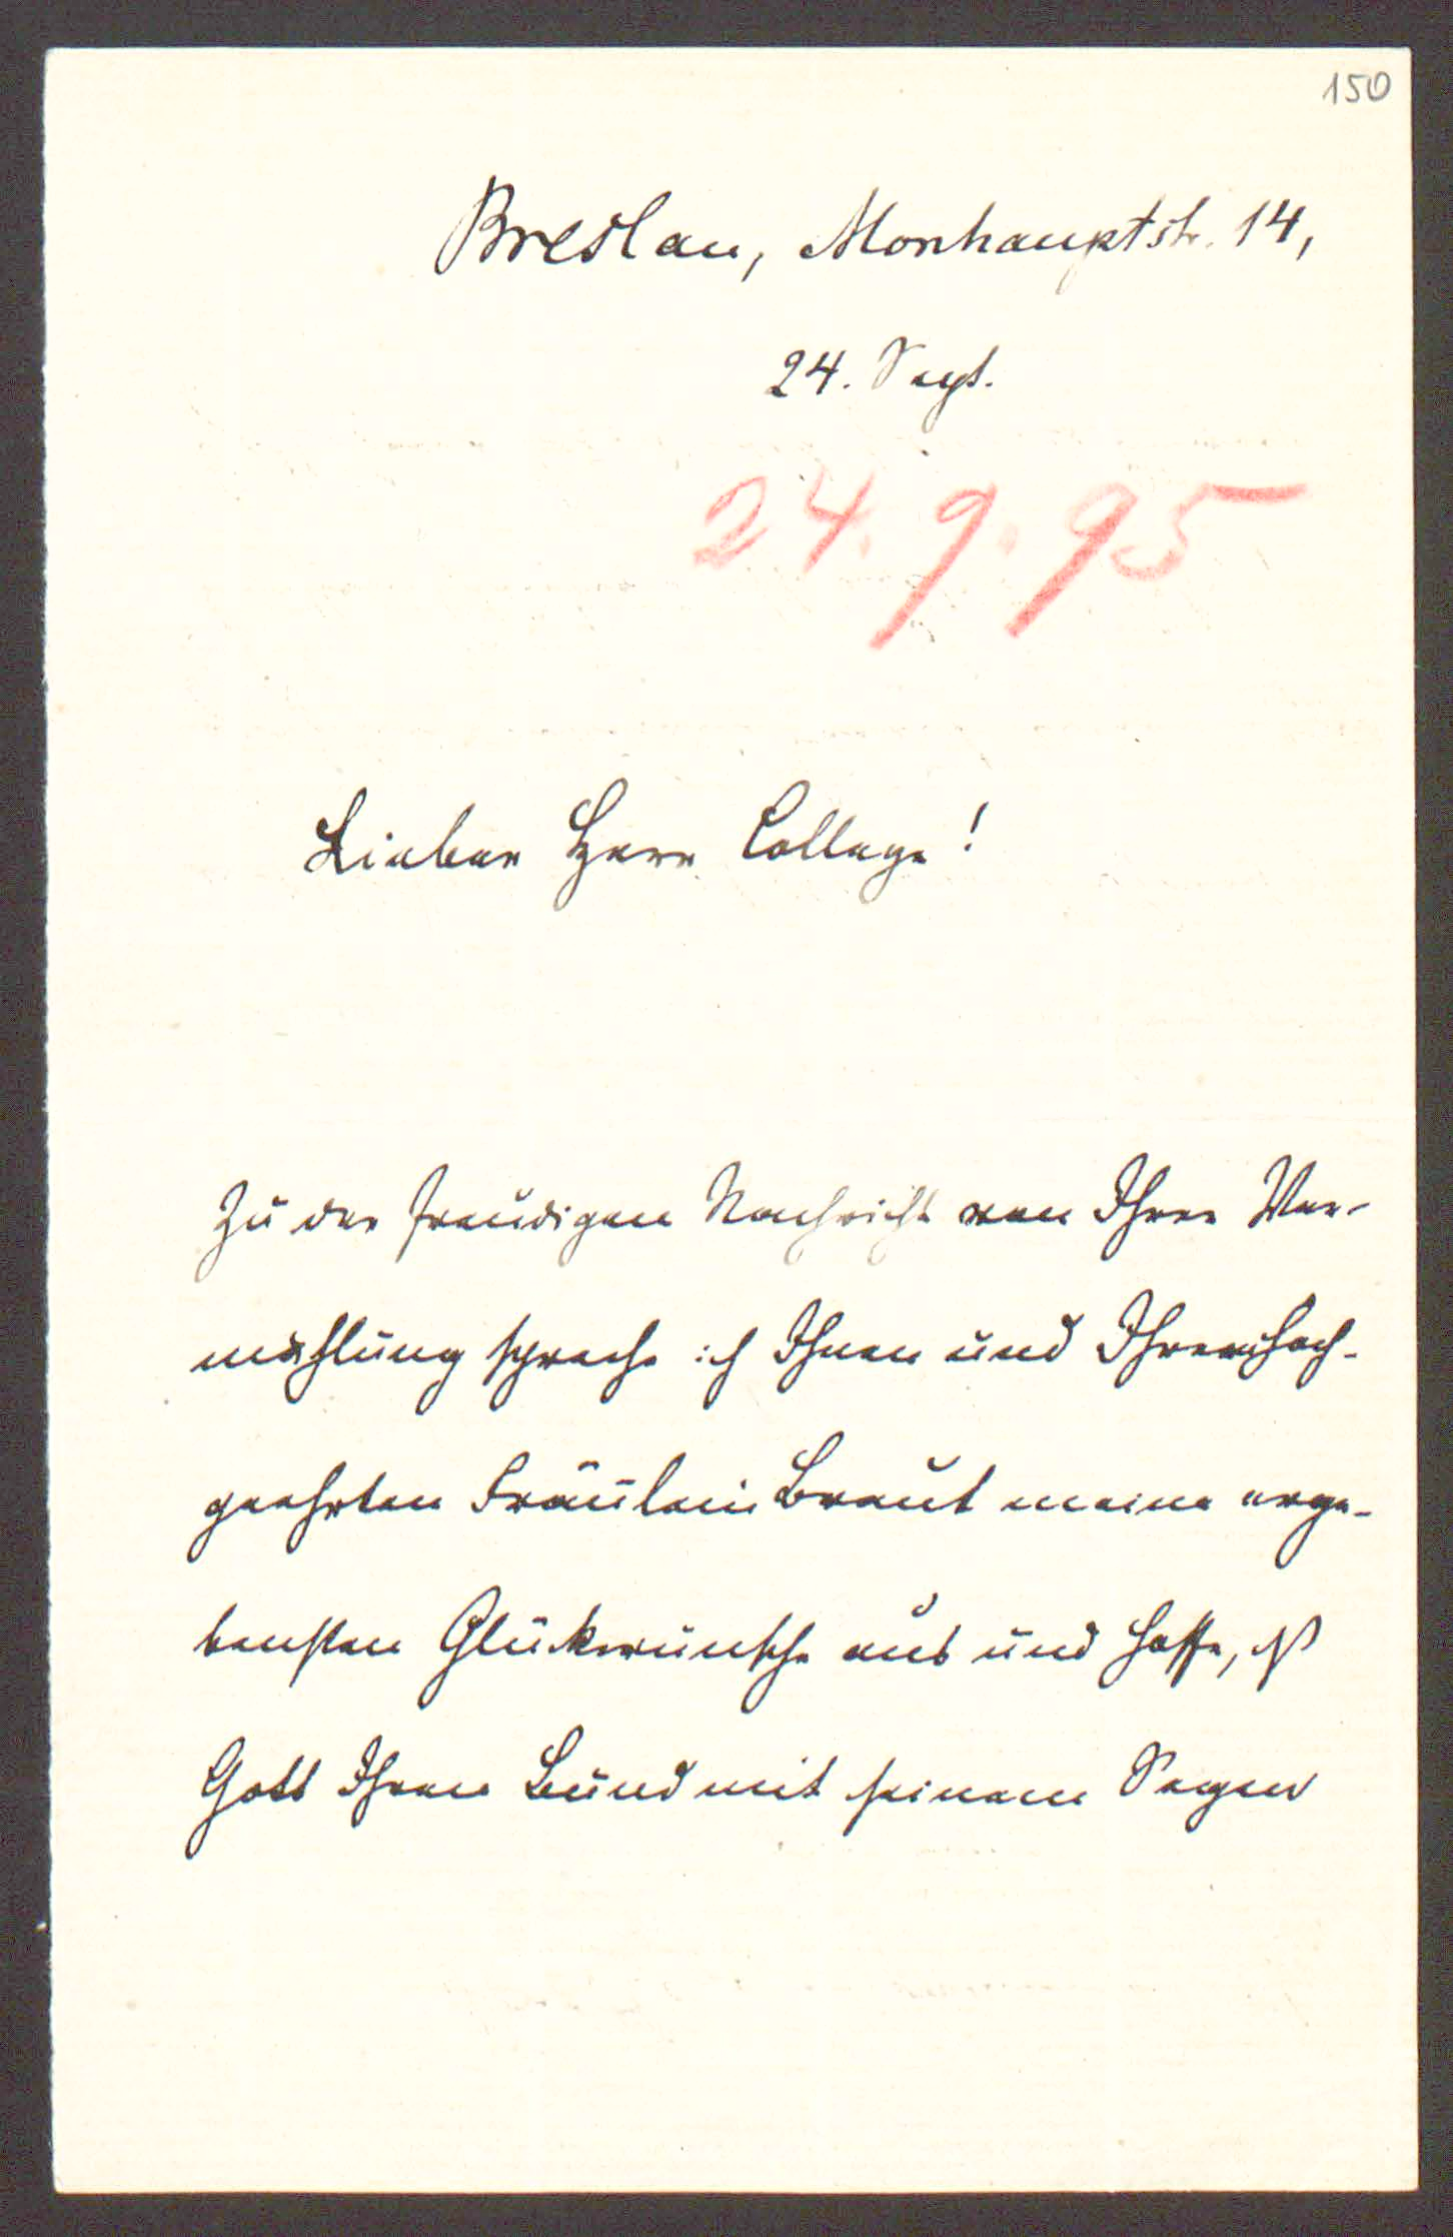 150
Breslau, Monhauptstr. 14,
24. Sept.
24. 9. 95
Lieber Herr College!
Zu der freudigen Nachricht von Ihrer Ver-
mählung spreche ich Ihnen und Ihrem hoch-
geehrten Fräulein Braut meine erge-
bensten Glückwünsche aus und hoffe, daß
Gott Ihren Bund mit seinem Segen